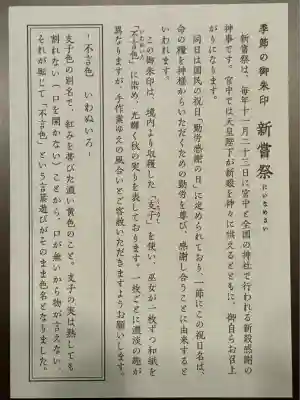 季節の御朱印 新嘗祭 にいなめさい
新嘗祭は、毎年十一月二十三日に宮中と全国の神社で行われる新穀感謝の
神事です。宮中では天皇陛下が新穀を神々に供えるとともに、御自らお召上
がりになります。
同日は国民の祝日「勤労感謝の日」に定められており、一節にこの祝日名は、
命の糧を神様からいただくための勤労を尊び、感謝し合うことに由来すると
いわれます。
この御朱印は、境内より収穫した「支子」を使い、巫女が一枚ずつ和紙を
「不言色」に染め、光輝く秋の実りを表しております。一枚ごとに濃淡の趣が
異なりますが、手作業ゆえの風合いとご容赦いただきますようお願いします。
-不言色 いわぬいろ-
支子色の別名で、紅みを帯びた濃い黄色のこと。支子の実は熟しても
割れない(口を開かない)ことから、「口が無いから物が言えない」
それが転じて「不言色」という言葉遊びがそのまま色名となりました。